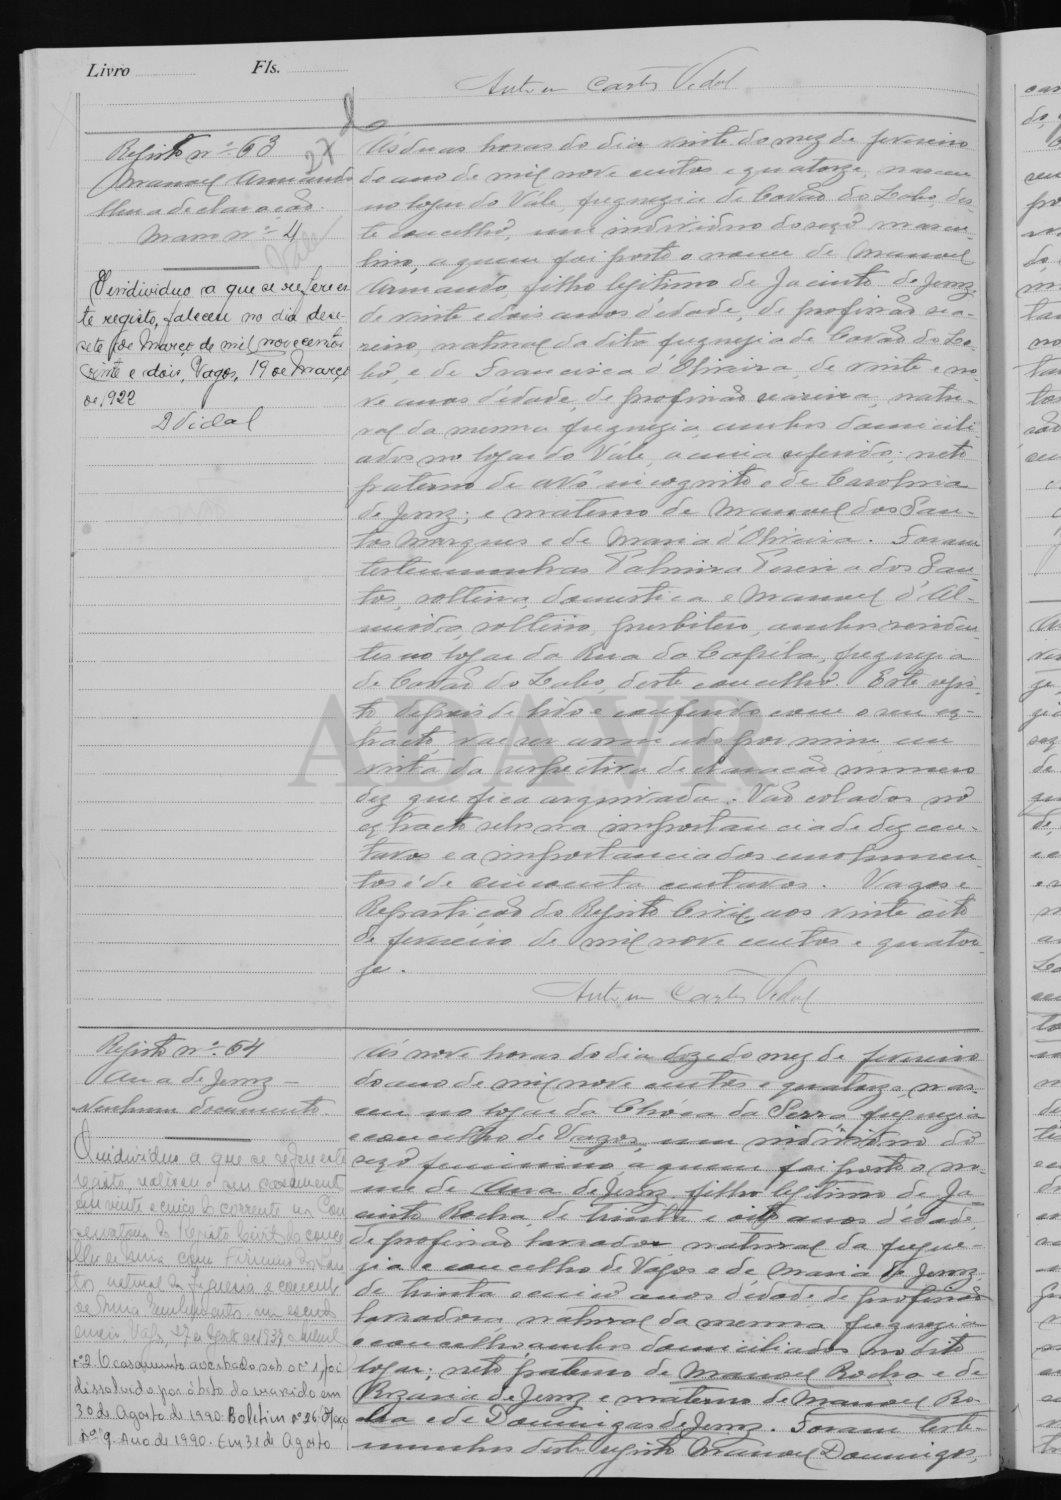 Livro Fls.
Vidal
Registo nº 63
Manoel Armando
Uma declaração
Maço nº 4
O individuo a que se refere es-
te registo, faleceu no dia deze-
sete de Março de mil novecentos
vinte e dois, Vagos, 19 de Março
de 1922
Vidal
Ás duas horas do dia vinte do mez de fevereiro
do ano de mil nove centos e quatorze, nasceu
no logar do Vale, freguezia de Covão do Lobo, des-
te concelho, um individuo do sexo mascu-
lino, a quem foi posto o nome de Manoel
Armando, filho legitimo de Jacinto de Jesuz,
de vinte e dois anos d'edade, de profissão sea-
reiro, natural da dita freguezia de Covão do Lo-
bo, e de Francisca d'Oliveira, de vinte e no-
ve anos d'edade, de profissão seareira, natu-
ral da mesma freguezia, ambos domicili-
ados no logar do Vale, acima referido; neto
paterno de avô incognito e de Carolina
de Jesuz; e materno de Manoel dos San-
tos Marques e de Maria d'Oliveira. Foram
testemunhas Palmira Pereira dos San-
tos, solteira, domestica e Manoel d'Al-
meida, solteiro, presbitero, ambos residen-
tes no logar da Rua da Capéla, freguezia
de Covão do Lobo, deste concelho. Este regis-
to, depois de lido e conferido com o seu ex-
tracto, vae ser assinado por mim em
vista da respectiva declaração numero
dez que fica arquivada. Vão colados no
extracto selos na importancia de dez cen-
tavos e a importancia dos emolumen-
tos é de cincoenta centavos. Vagos e
Repartição do Registo Civil, aos vinte oito
de fevereiro de mil nove centos e quator-
ze.
Vidal
Registo nº 64
Ana de Jesuz
Nenhum documento
O individuo a que se refere este
registo, realisou o seu casamento
em vinte e cinco do corrente na Con-
servatoria do Registo Civil do conce-
lho de
natural da freguesia e concelho
nº 2. O casamento averbado sob o nº 1, foi
dissolvido por óbito do marido em
30 de Agosto de 1990. Boletim nº 26. Maço
nº 9. Ano de 1990. Em 31 de Agosto
Ás nove horas do dia doze do mez de fevereiro
do ano de mil nove centos e quatorze, nas-
ceu no logar da Chóca da Serra, freguezia
e concelho de Vagos, um individuo do
sexo feminino, a quem foi posto o no-
me de Ana de Jesuz, filho legitimo de Ja-
cinto Rocha, de trinta e oito anos d'edade,
de profissão lavrador natural da fregue-
zia e concelho de Vagos e de Maria de Jesuz,
de trinta e cinco anos d'edade, de profissão
lavradora natural da mesma freguezia
e concelho, ambos domiciliados no dito
logar; neto paterno de Manoel Rocha e de
Rozaria de Jesuz e materno de Manoel Ro-
cha e de Domingas de Jesuz. Foram teste-
munhas deste registo Manoel Domingos,
ADAVR